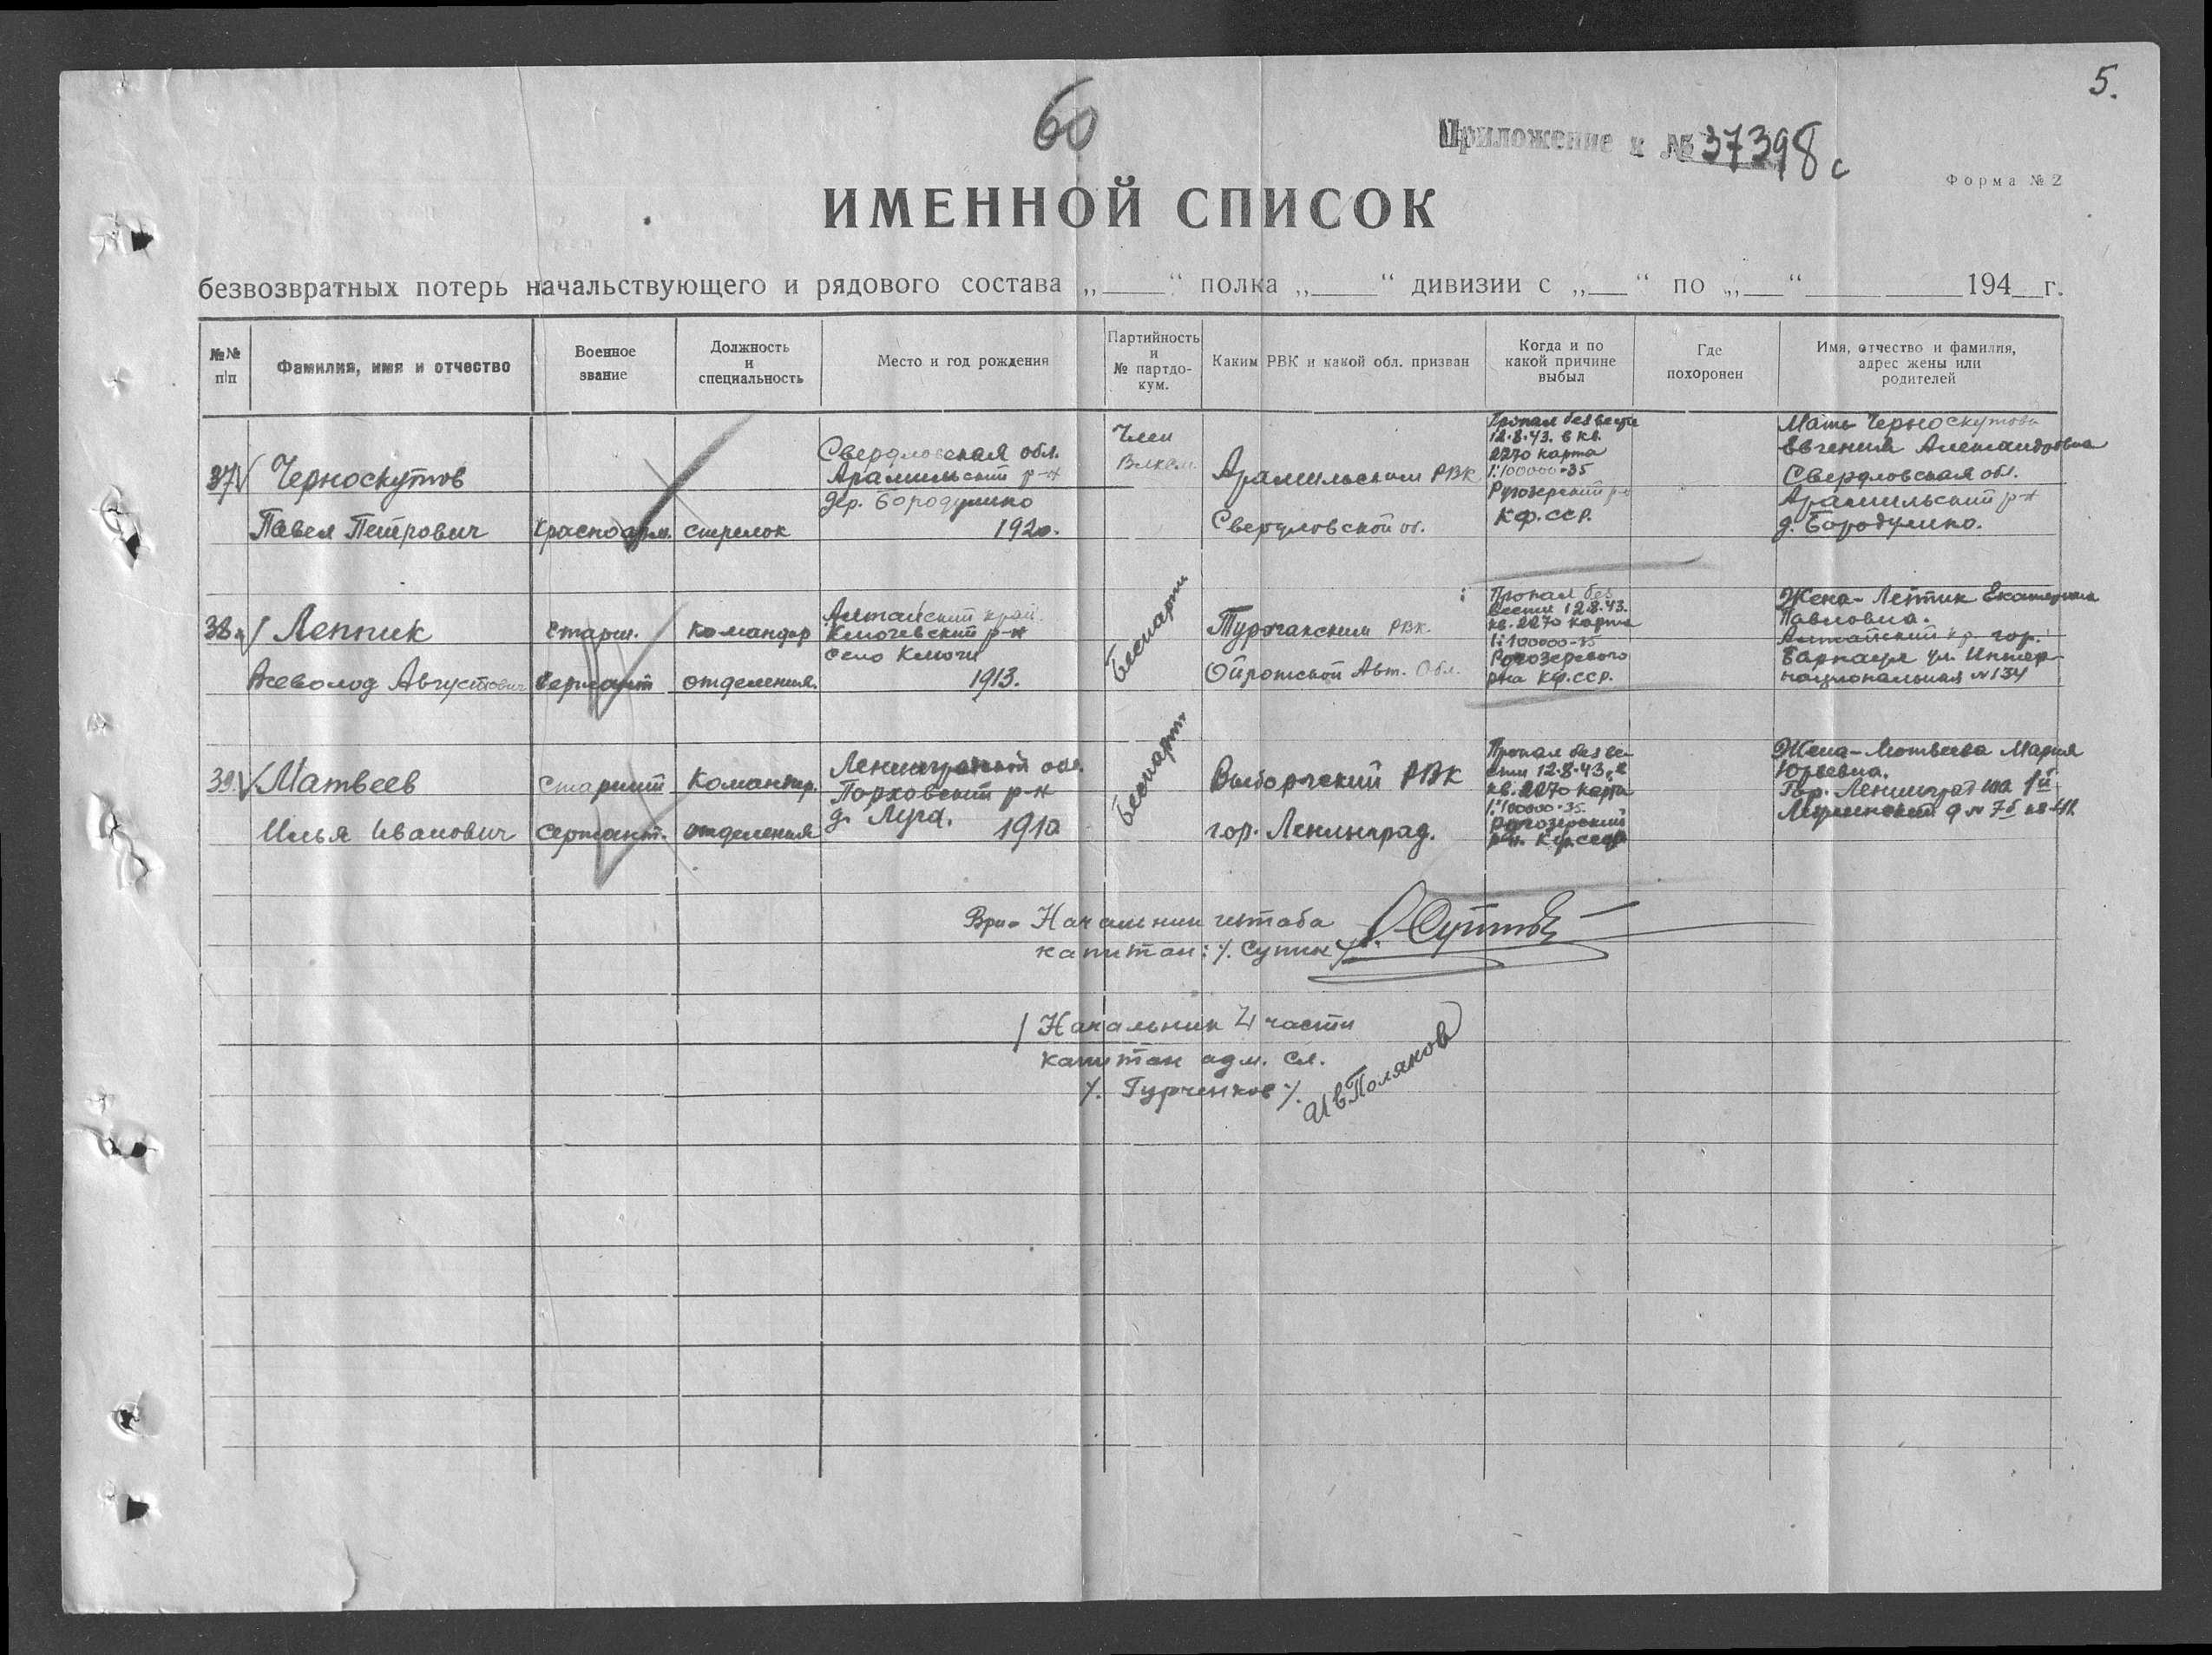 5.
60
Приложение к № 37398 с
Форма № 2
ИМЕННОЙ СПИСОК
безвозвратных потерь начальствующего и рядового состава „ “ полка „ “ дивизии с „ “ по „ “ 194 г.
№№ п/п
Фамилия, имя и отчество
Военное звание
Должность и специальность
Место и год рождения
Партийность и № партдо-кум.
Каким РВК и какой обл. призван
Когда и по какой причине выбыл
Где похоронен
Имя, отчество и фамилия, адрес жены или родителей
37
Черноскутов
Павел Петрович
Красноарм.
стрелок
Свердловская обл.
Арамильский р-н
дер. Бородулино
1920.
Член
Влксм
Арамильским РВК
Свердловской об.
Пропал без вести
12.8.43. в кв.
2270 карта
1:100000-35
Ругозерский р-н
КФ.ССР.
Мать Черноскутова
Евгения Александровна
Свердловская обл.
Арамильский р-н
д. Бородулино.
38
Леппик
Всеволод Августович
Старш.
сержант
командир
отделения.
Алтайский край
Ключевский р-н
село Ключи
1913.
беспарт
Турочакским РВК.
Ойротской Авт. Обл.
Пропал без
вести 12.8.43.
кв. 2270 карта
1:100000-35
р-на КФ.ССР.
Жена - Леппик Екатерина
Павловна.
Алтайский кр. гор.
Барнаул ул. Интер-
национальная №134
39.
Матвеев
Илья Иванович
Старший
сержант.
Командир.
отделения
Ленинградской обл.
Порховский р-н
д. Луга.
1910
беспарт.
Выборгский РВК
гор. Ленинград.
Пропал без ве-
сти 12.8.43. в
кв. 2270 карта
1:100000-35.
р-н. Кф.сср
Жена - Матвеева Мария
Юрьевна.
Гор. Ленинград 1й
Врио Начальник штаба
капитан: /. Супин /.
Начальник 4 части
капитан адм. сл.
/. Гурченков /.
Ив Поляков